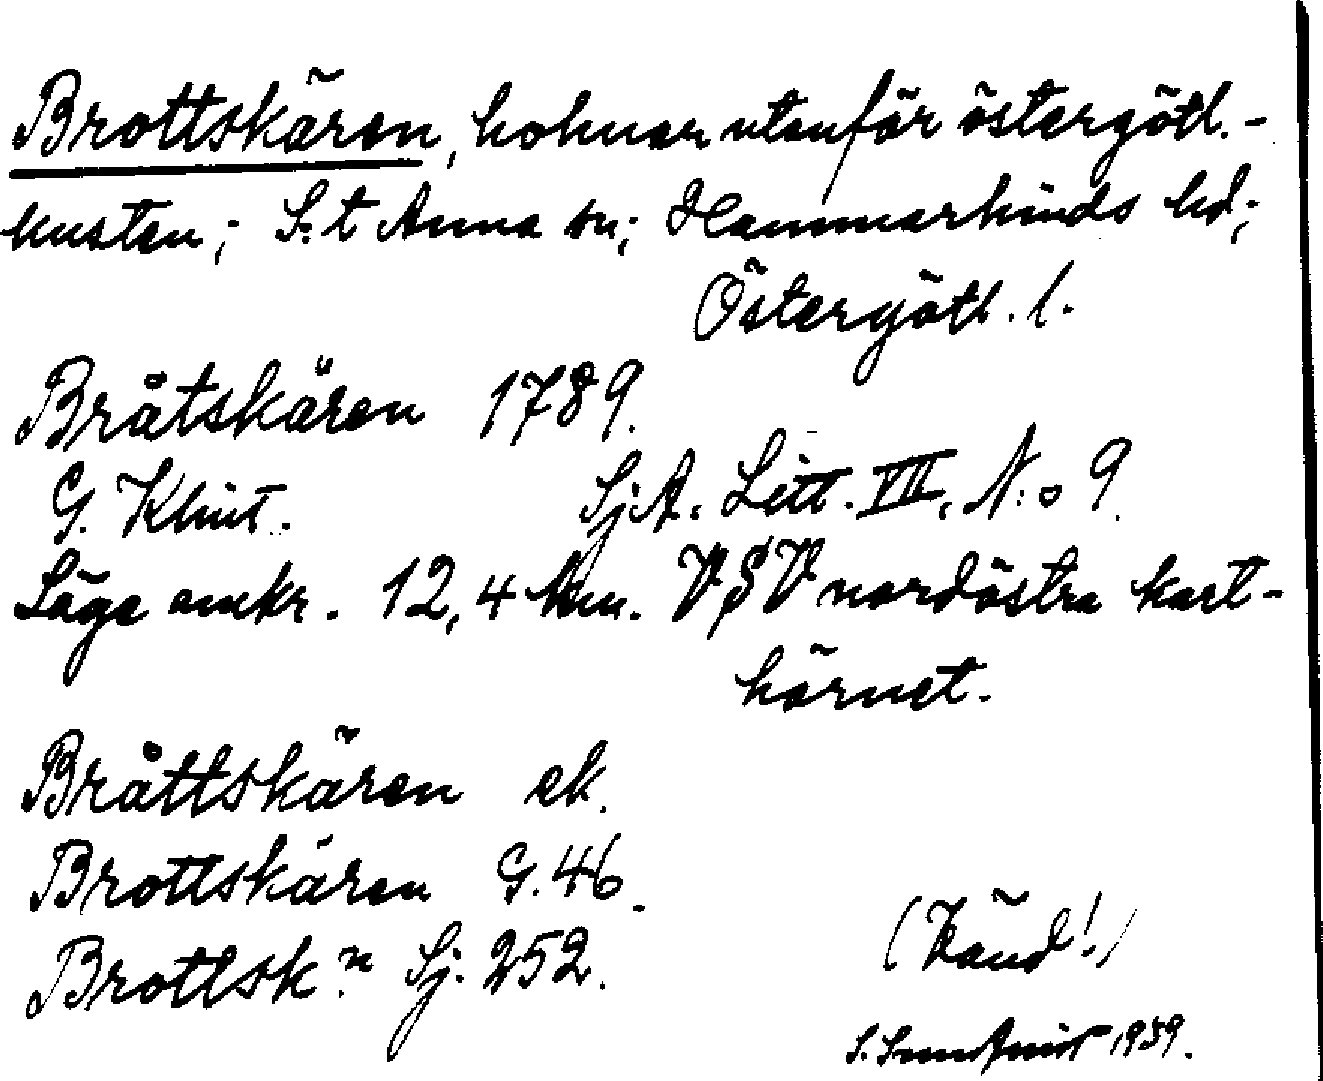 Brottskären, holmar utanför östergötl.-
kusten; S:t Anna sn; Hammarkinds hd;
Östergötl. l.
Bråtskären 1789.
G. Klint. SjA. Litt. VII, N:o 9.
Läge omkr. 12,4 km. VSV nordöstra kart-
hörnet.
Bråttskären ek.
Brottskären G. 46.
Brottsk:n Sj. 252.
(Känd!)
S. 1939.